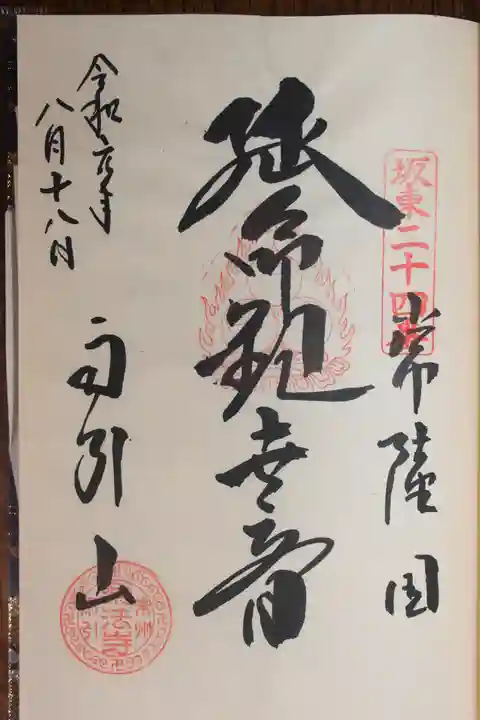 坂東二十四番
常陸国
延命観世音
令和年
八月十八日
雨引山
常州
法寺
引